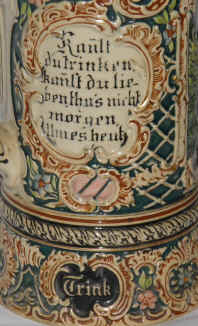 Kanst
du trinken,
kanst du lie-
ben thu's nicht
morgen,
thu es heut.
Trink